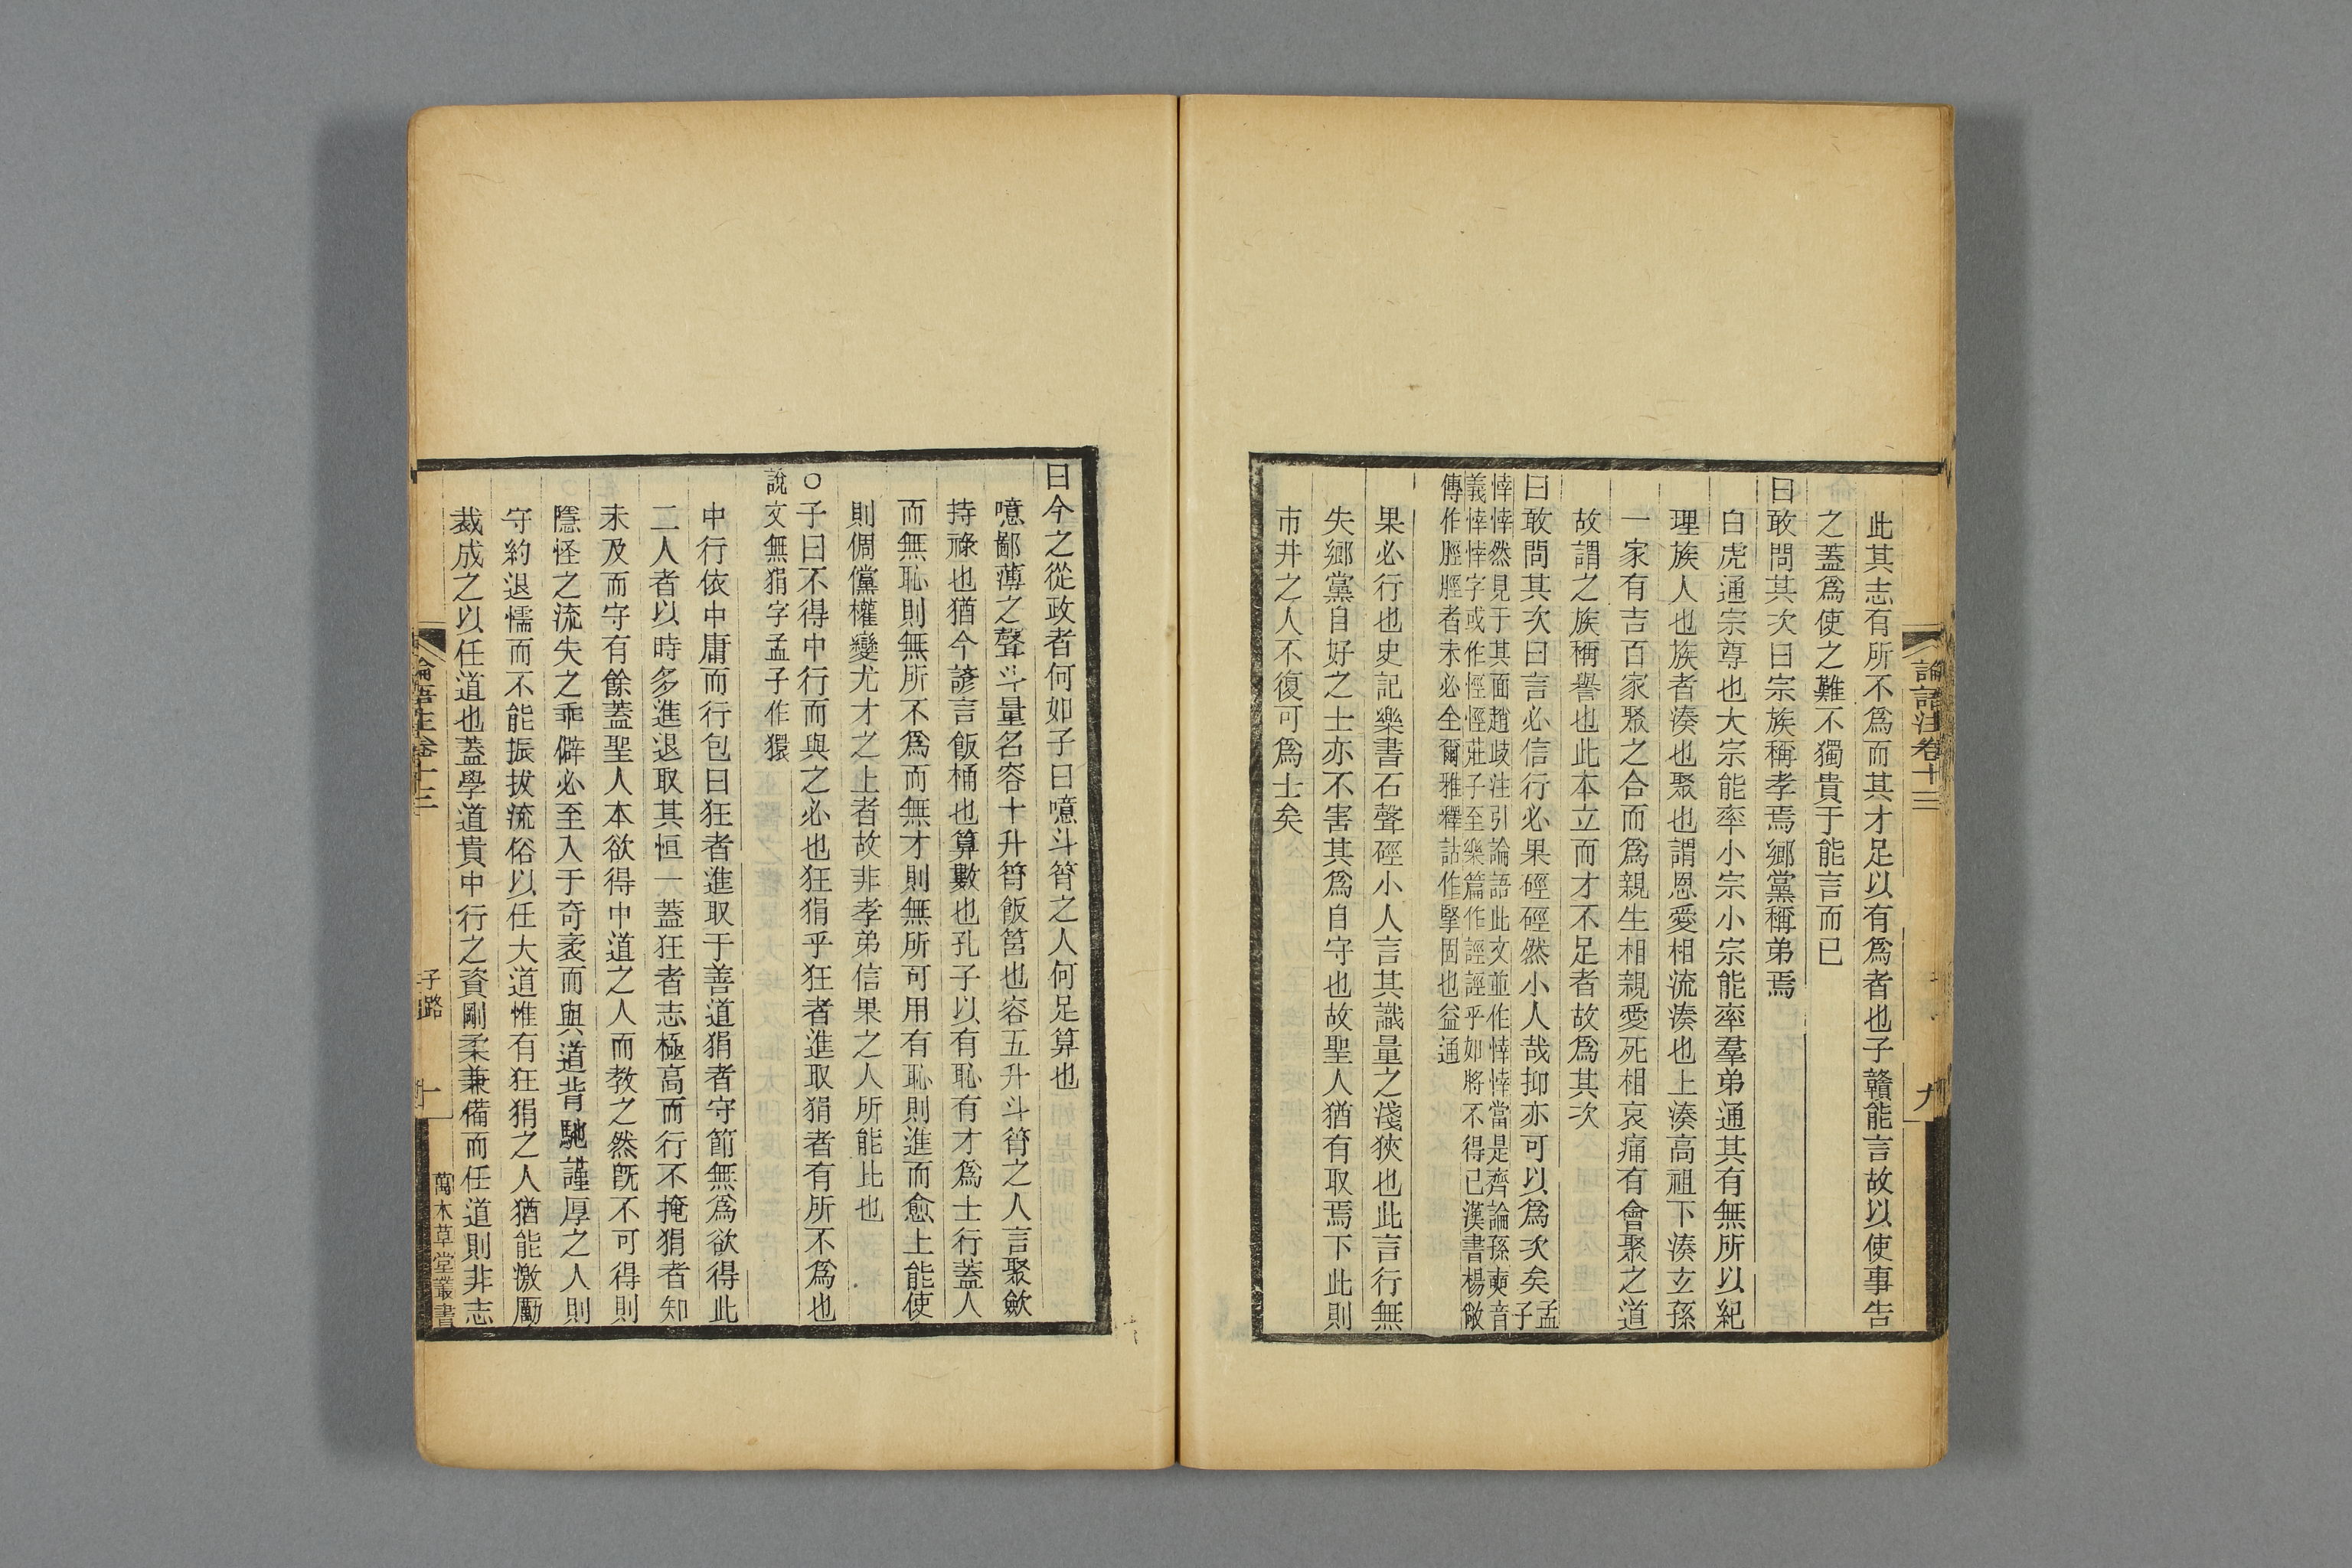 論語注卷十三
九
此其志有所不爲而其才足以有爲者也子贛能言故以使事告
之蓋爲使之難不獨貴于能言而已
曰敢問其次曰宗族稱孝焉鄉黨稱弟焉
白虎通宗尊也大宗能率小宗小宗能率羣弟通其有無所以紀
理族人也族者湊也聚也謂恩愛相流湊也上湊高祖下湊玄孫
一家有吉百家聚之合而爲親生相親愛死相哀痛有會聚之道
故謂之族稱譽也此本立而才不足者故爲其次
曰敢問其次曰言必信行必果硜硜然小人哉抑亦可以爲次矣孟子
悻悻然見于其面趙歧注引論語此文並作悻悻當是齊論孫奭音
義悻悻字或作悭悭莊子至樂篇作誙誙乎如將不得已漢書楊敞
傳作脛脛者未必全爾雅釋詁作掔固也益通
果必行也史記樂書石聲硜小人言其識量之淺狹也此言行無
失鄉黨自好之士亦不害其爲自守也故聖人猶有取焉下此則
市井之人不復可爲士矣
曰今之從政者何如子曰噫斗筲之人何足算也
噫鄙薄之聲斗量名容十升筲飯筥也容五升斗筲之人言聚歛
持祿也猶今諺言飯桶也算數也孔子以有恥有才爲士行蓋人
而無恥則無所不爲而無才則無所可用有恥則進而愈上能使
則倜儻權變尤才之上者故非孝弟信果之人所能比也
○子曰不得中行而與之必也狂狷乎狂者進取狷者有所不爲也
說文無狷字孟子作獧
中行依中庸而行包曰狂者進取于善道狷者守節無爲欲得此
二人者以時多進退取其恒一蓋狂者志極高而行不掩狷者知
未及而守有餘蓋聖人本欲得中道之人而教之然旣不可得則
隱怪之流失之乖僻必至入于奇衺而與道背馳謹厚之人則
守約退懦而不能振拔流俗以任大道惟有狂狷之人猶能激勵
裁成之以任道也蓋學道貴中行之資剛柔兼備而任道則非志
論語注卷十三
子路
十
萬木草堂叢書